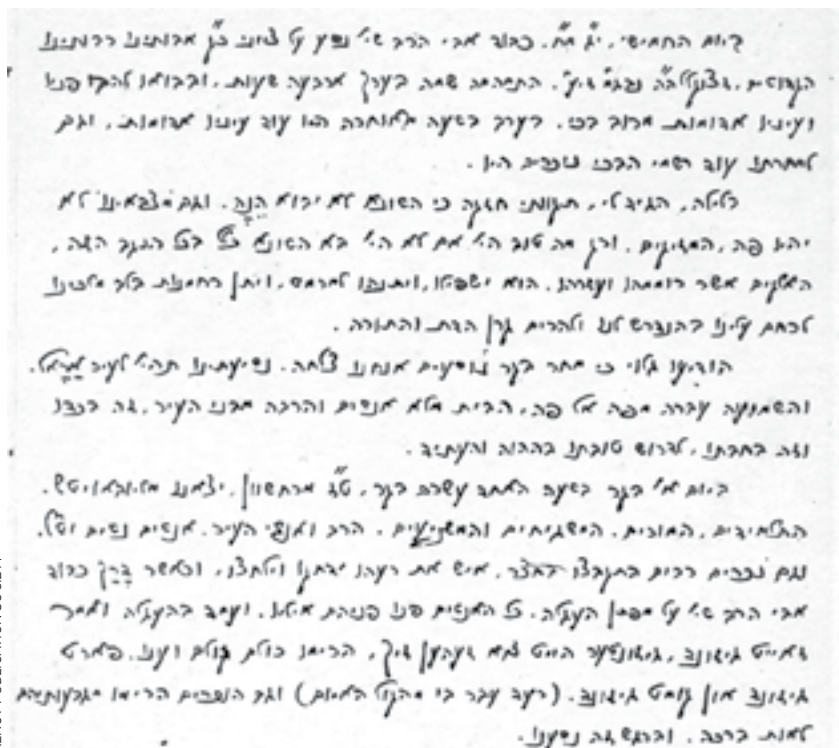 ביום החמישי, י"ג מ"ח, כבוד אבי הרב שי' נסע על ציוני כ"ק אבותינו רבותינו
הקדושים, זצוקללה"ה נבג"מ זי"ע. התמהמה שמה בערך ארבעה שעות, ובבואו להבי פניו
ועיניו אדומות מרוב בכי. בערב בשעה מאוחרה היו עוד עיניו אדומות, וגם
למחרתו עוד רשמי הבכי נוכרים היו.
בלילה, הגיד לי, תקותי חזקה כי השונא לא יבוא הֵנָּה, וגם "צבאינו" לא
יהיו פה, המזיקים, ורק מה טוב הי' אם לא הי' בא השונא כלל בכל הגבר הזה,
האלקים אשר רוממהו ועזרהו, הוא ישפילו, ויתנהו למרמס, ויתן רחמנות בלב מלכינו
לרחם עלינו בהנדרש לנו ולהרים קרן הדת והתורה.
הודיעו גלוי כי מחר בקר נוסעים אנחנו צלחה. נסיעתינו תהי' לעיר
והשמועה עברה מפה אל פה, הבית מלא אנשים והרבה מבני העיר, זה בכדו
וזה בחברתו, לדרוש טובתו בהוה והעתיד.
ביום א' בקר בשעה האחד עשרה בקר, ט"ז מרחשון, יצאנו מליובאוויטש.
התלמידים, המורים, המשגיחים והמשפיעים, הרב ואנשי העיר, אנשים נשים וטף,
וגם נכרים רבים התקבצו בחצר, איש את רעהו ידחקו וילחצו, וכאשר דָרַךְ כבוד
אבי הרב שי' על מפתן העגלה, כל האנשים פנו פניהם אילו, ועמד בהעגלה ואמר
זאייט געזונד, געזונטער הייט זאל זעהען זיך, הרימו כולם קולם וענו, פארט
געזונד און קומט געזונד, (רעד עבר בי מהקול האיום) וגם הנכרים הרימו מגבעותיהם
לאות ברכה, וברגע זה נסענו.